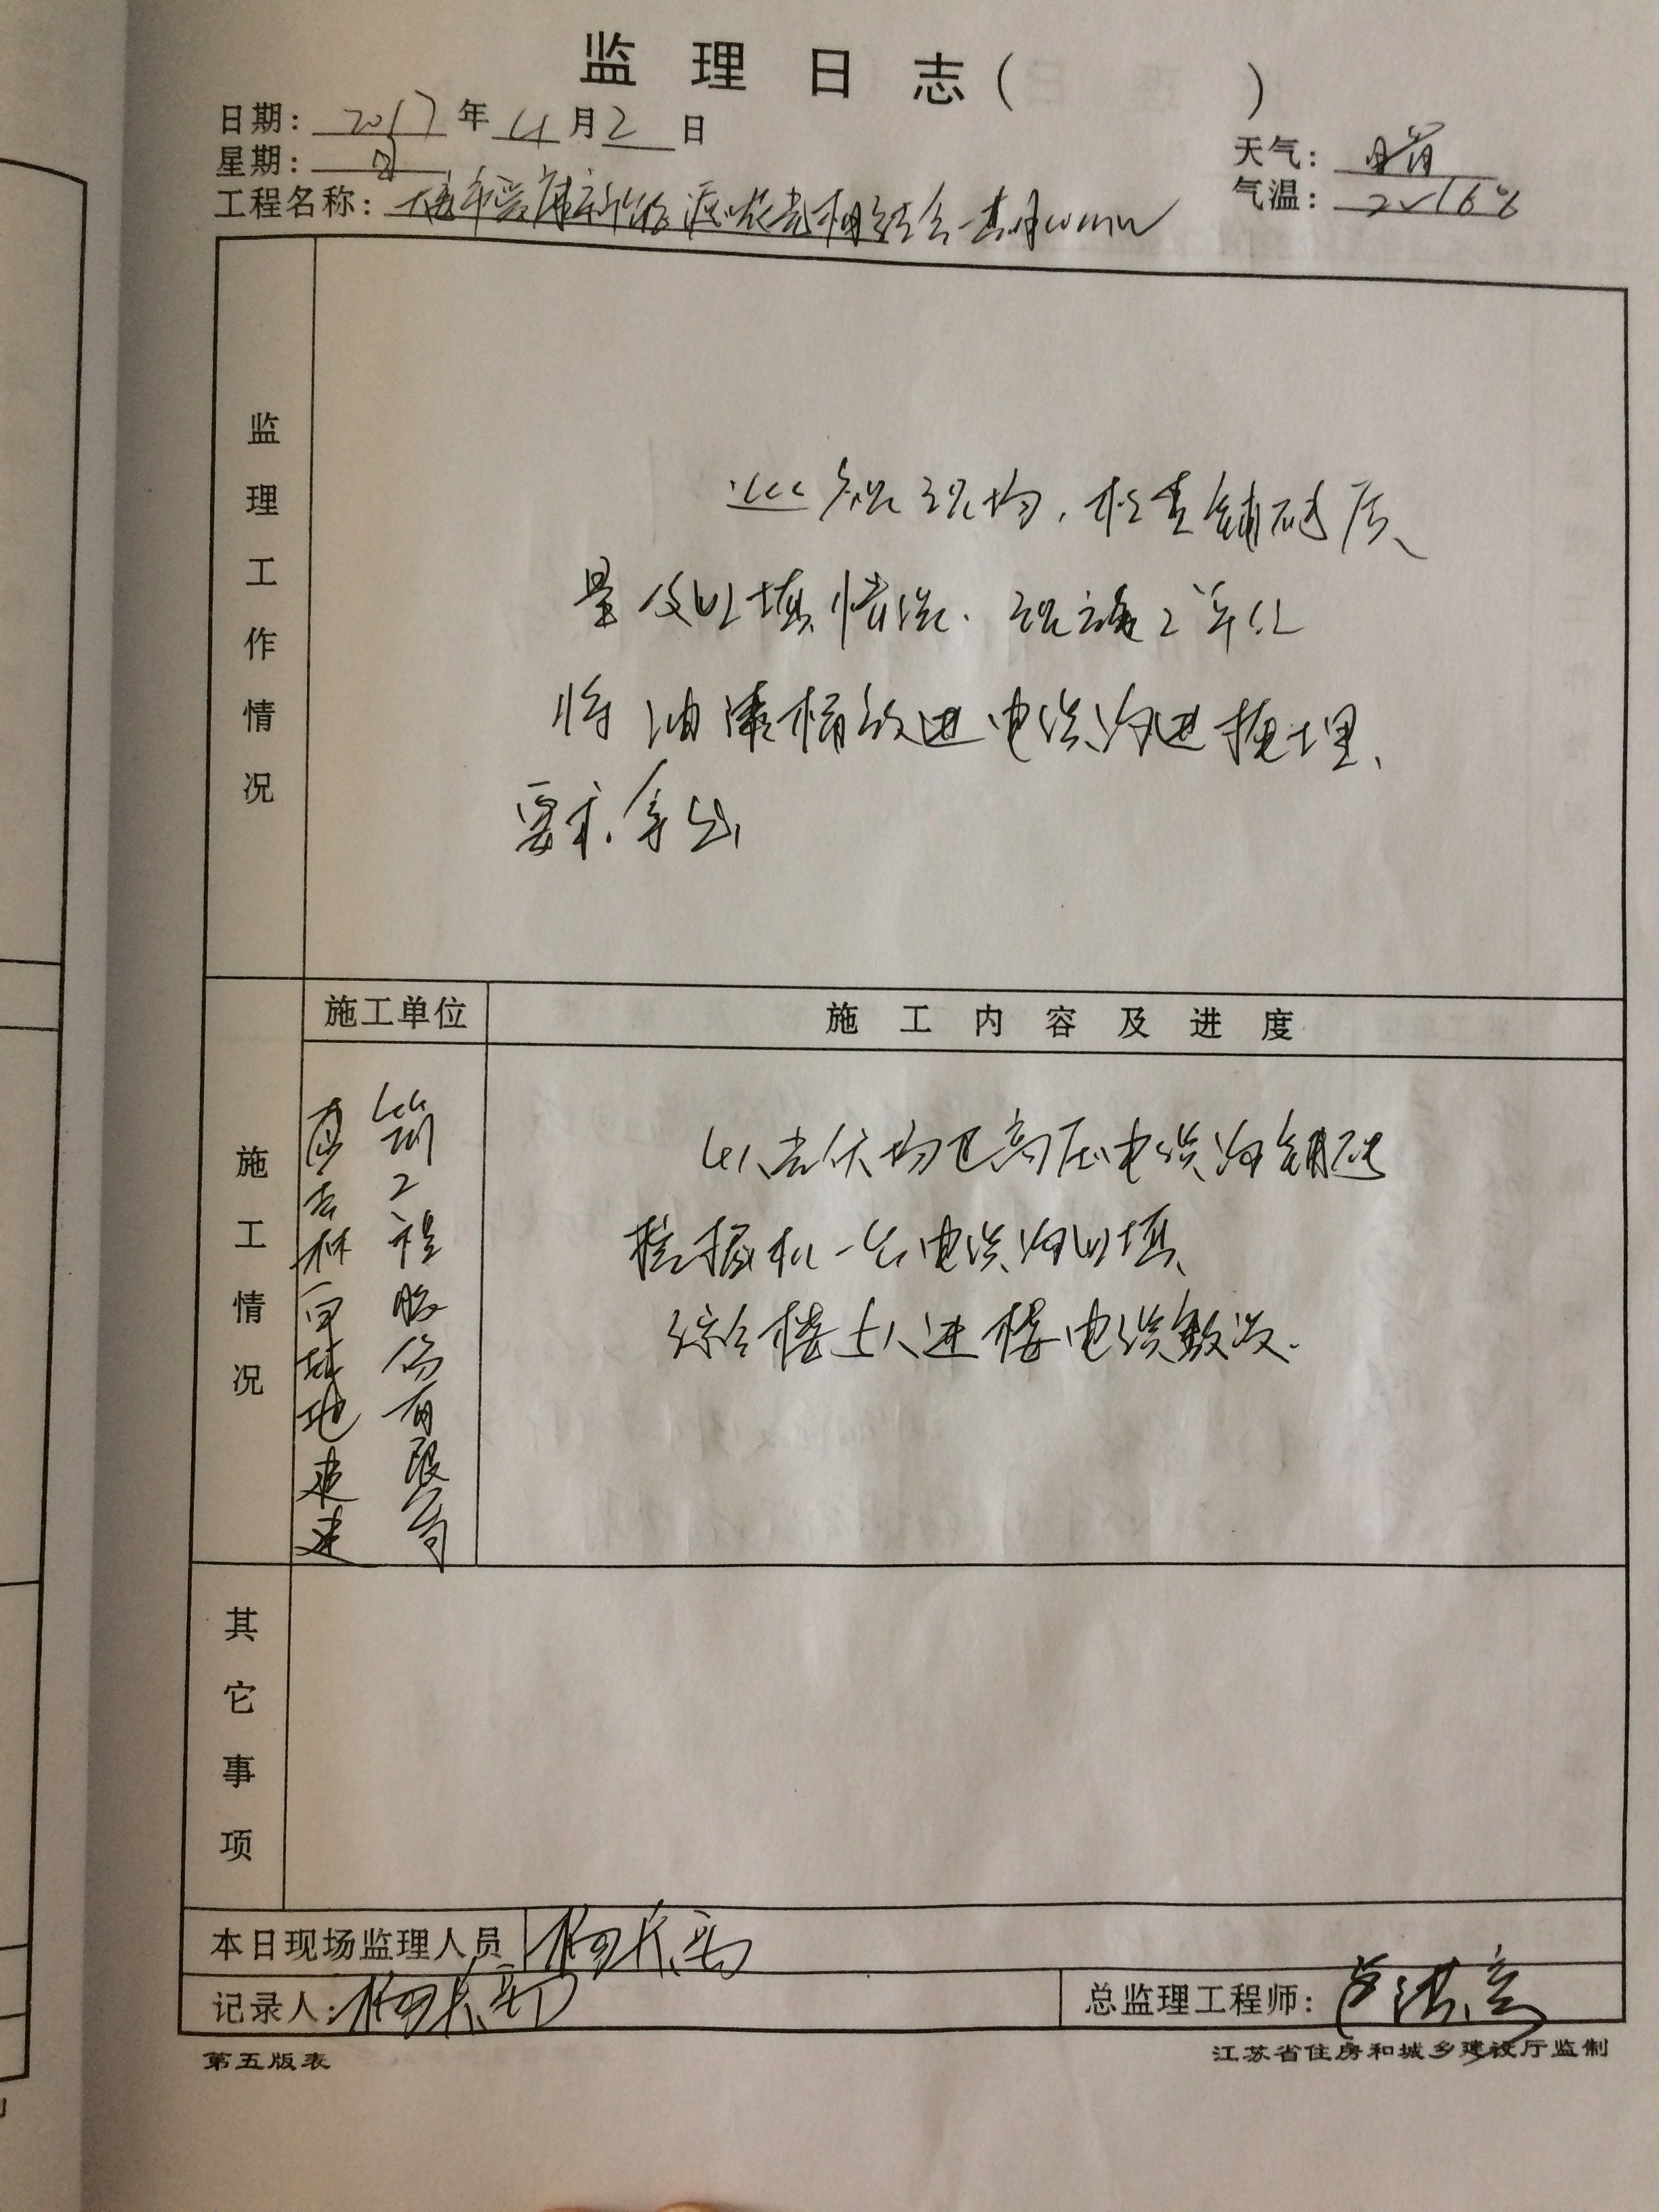 监理日志(      )
日期: 2017 年 4 月 2 日
星期: 日
天气: 晴
气温: 2~16℃
工程名称: 新能源农光相结合一期
监理工作情况
巡视现场,检查铺砖质
量及回填情况.现施工单位
将油漆桶放进电缆沟进掩埋、
要求拿出
施工情况
施工单位
施工内容及进度
吉林
建
筑工程股份有限公司
4人光伏场区高压电缆沟铺砖
挖掘机一台电缆沟回填
综合楼5人进楼电缆敷设.
其它事项
本日现场监理人员
记录人:
总监理工程师:
第五版表
江苏省住房和城乡建设厅监制